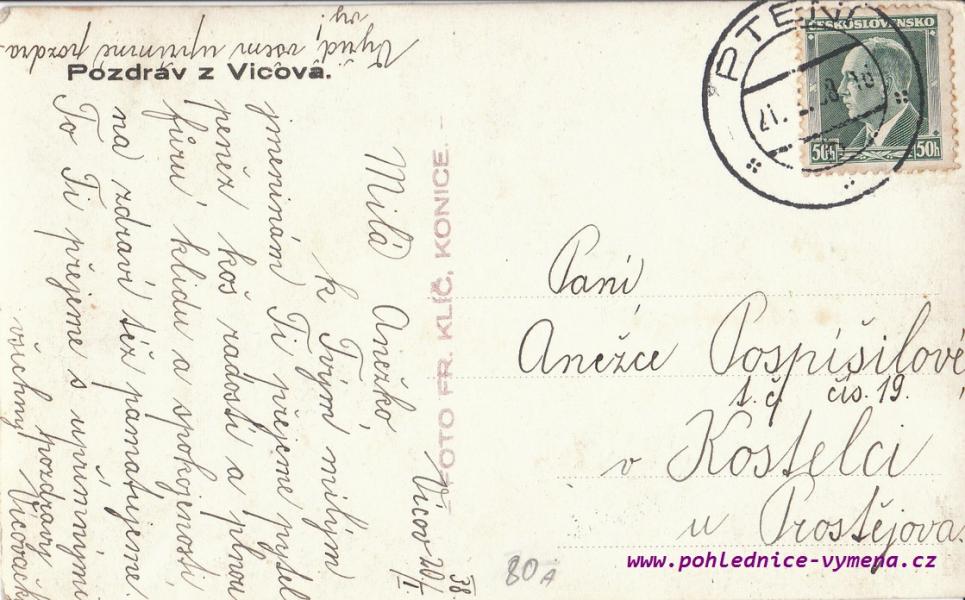 Vyřiď všem upřímné pozdra
vy!
Pozdrav z Vicova.
Vícov 20/I. 38.
Milá Anežko,
k Tvým milým
jmeninám Ti přejeme pytel
peněz koš radosti a plnou
fůru klidu a spokojenosti,
na zdraví též pamatujeme.
To Ti přejeme s upřímnými
pozdravy
všichny Vícovačky
FOTO FR. KLÍČ, KONICE.
PTENÍ
21.
ČESKOSLOVENSKO
50h 50h
Paní
Anežce Pospíšilové
t. č. čís. 19.
v Kostelci
u Prostějova.
80A
www.pohlednice-vymena.cz